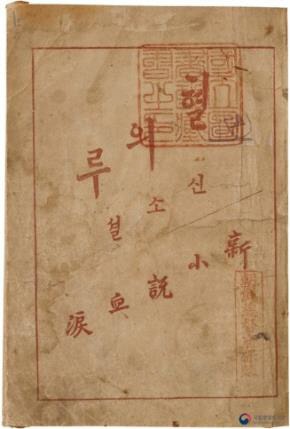 혈의루
신소설
新小說血淚